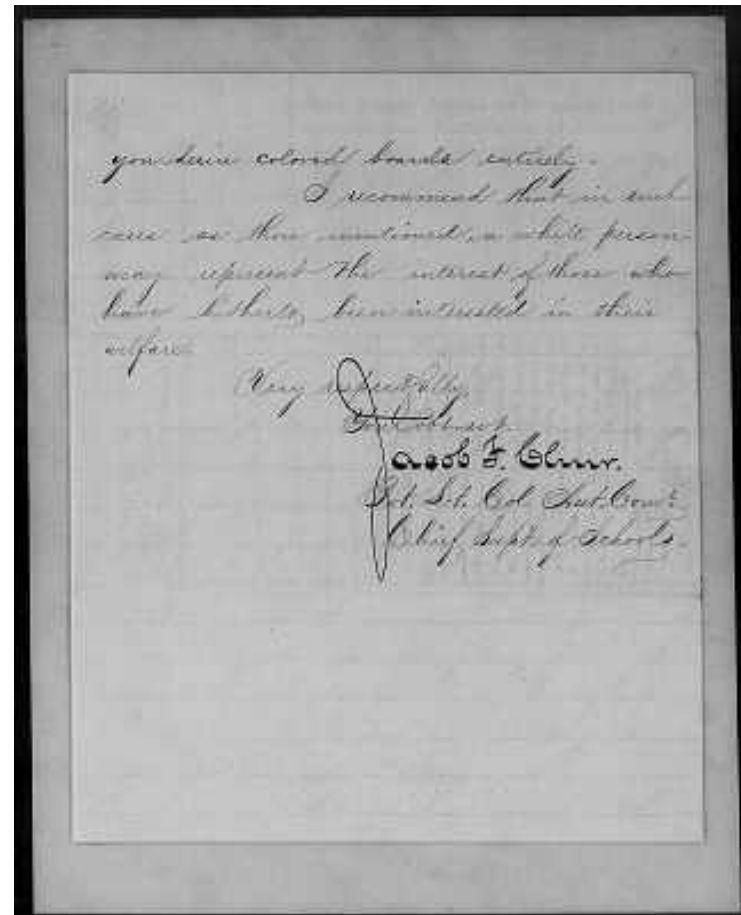 you desire colored boards entirely.
I recommend that in such
cases as those mentioned, a white person
may represent the interest of those who
have hitherto, been interested in their
welfare
Very respectfully,
Your obt. svt.
Jacob F. Chur.
Bvt. Lt. Col.
Chief Supt of Schools.